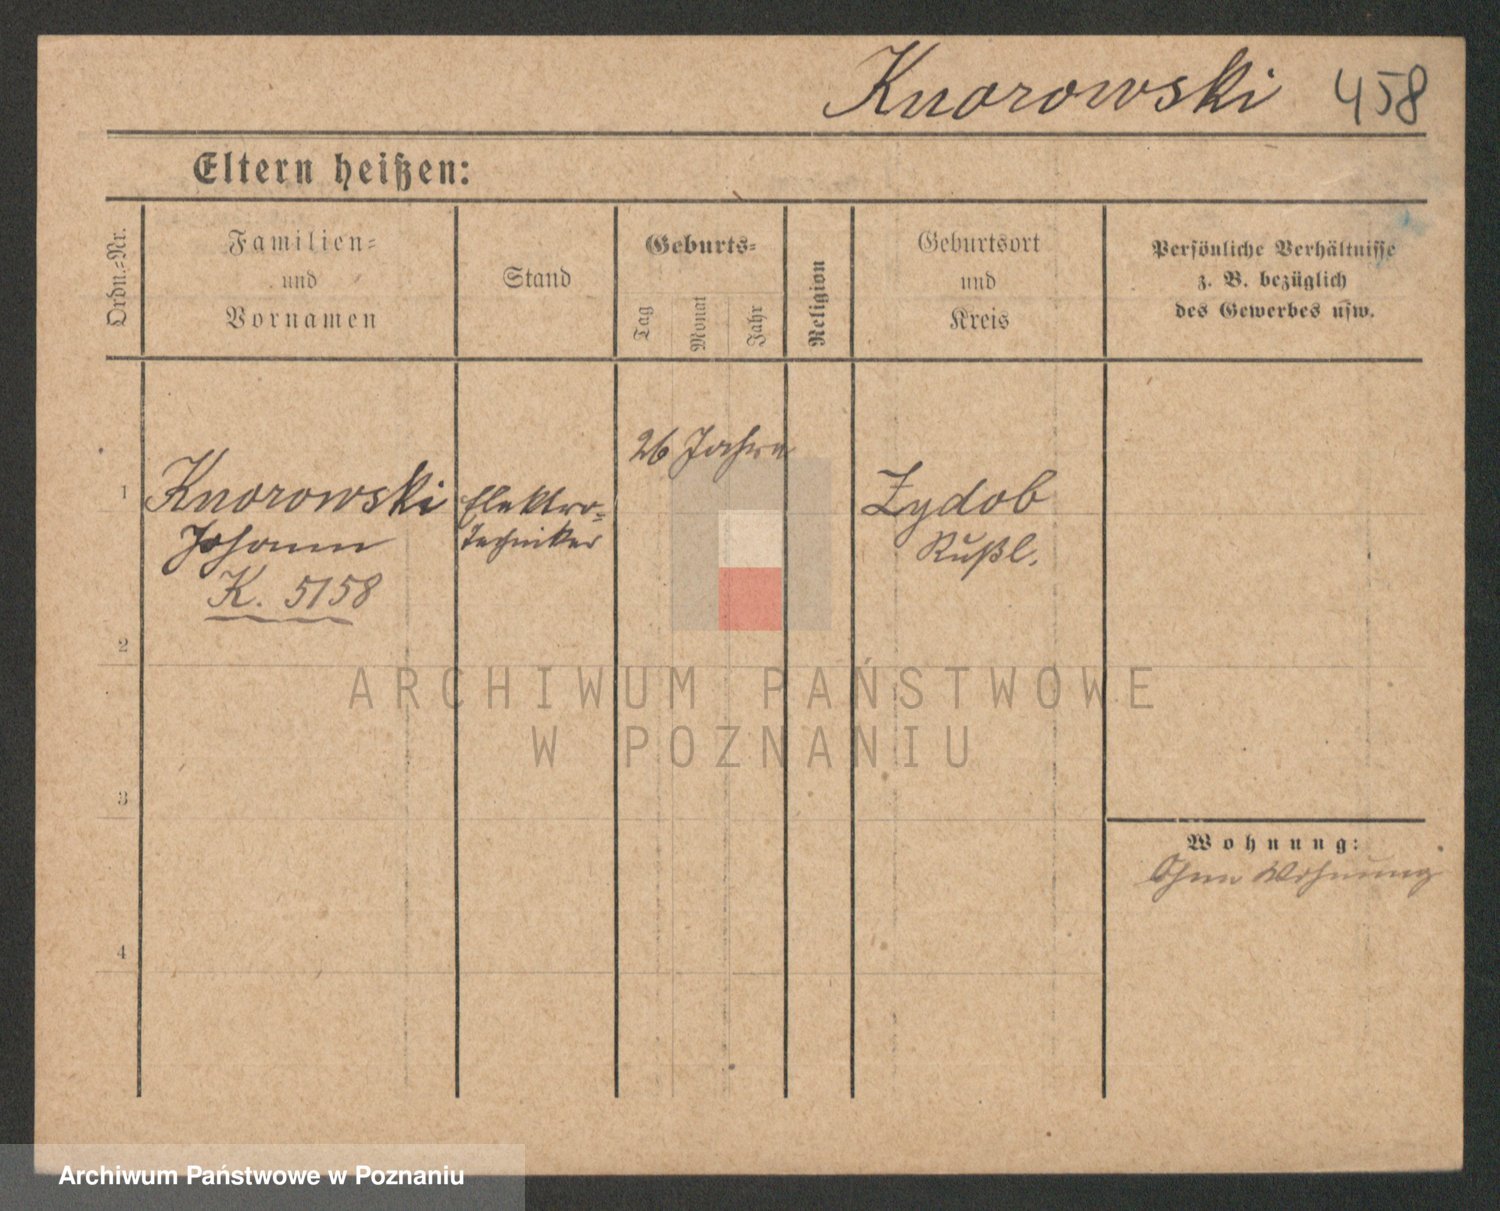 Knorowski 458
Eltern heißen:
Ordn.-Nr.
Familien-
und
Vornamen
Stand
Geburts-
Tag
Monat
Jahr
Religion
Geburtsort
und
Kreis
Persönliche Verhältnisse
z. B. bezüglich
des Gewerbes usw.
26 Jahre
1
Knorowski
Johann
K. 5158
Elektro-
techniker
Zydob
Rußl.
2
ARCHIWUM PAŃSTWOWE
W POZNANIU
3
Wohnung:
Ohne Wohnung
4
Archiwum Państwowe w Poznaniu